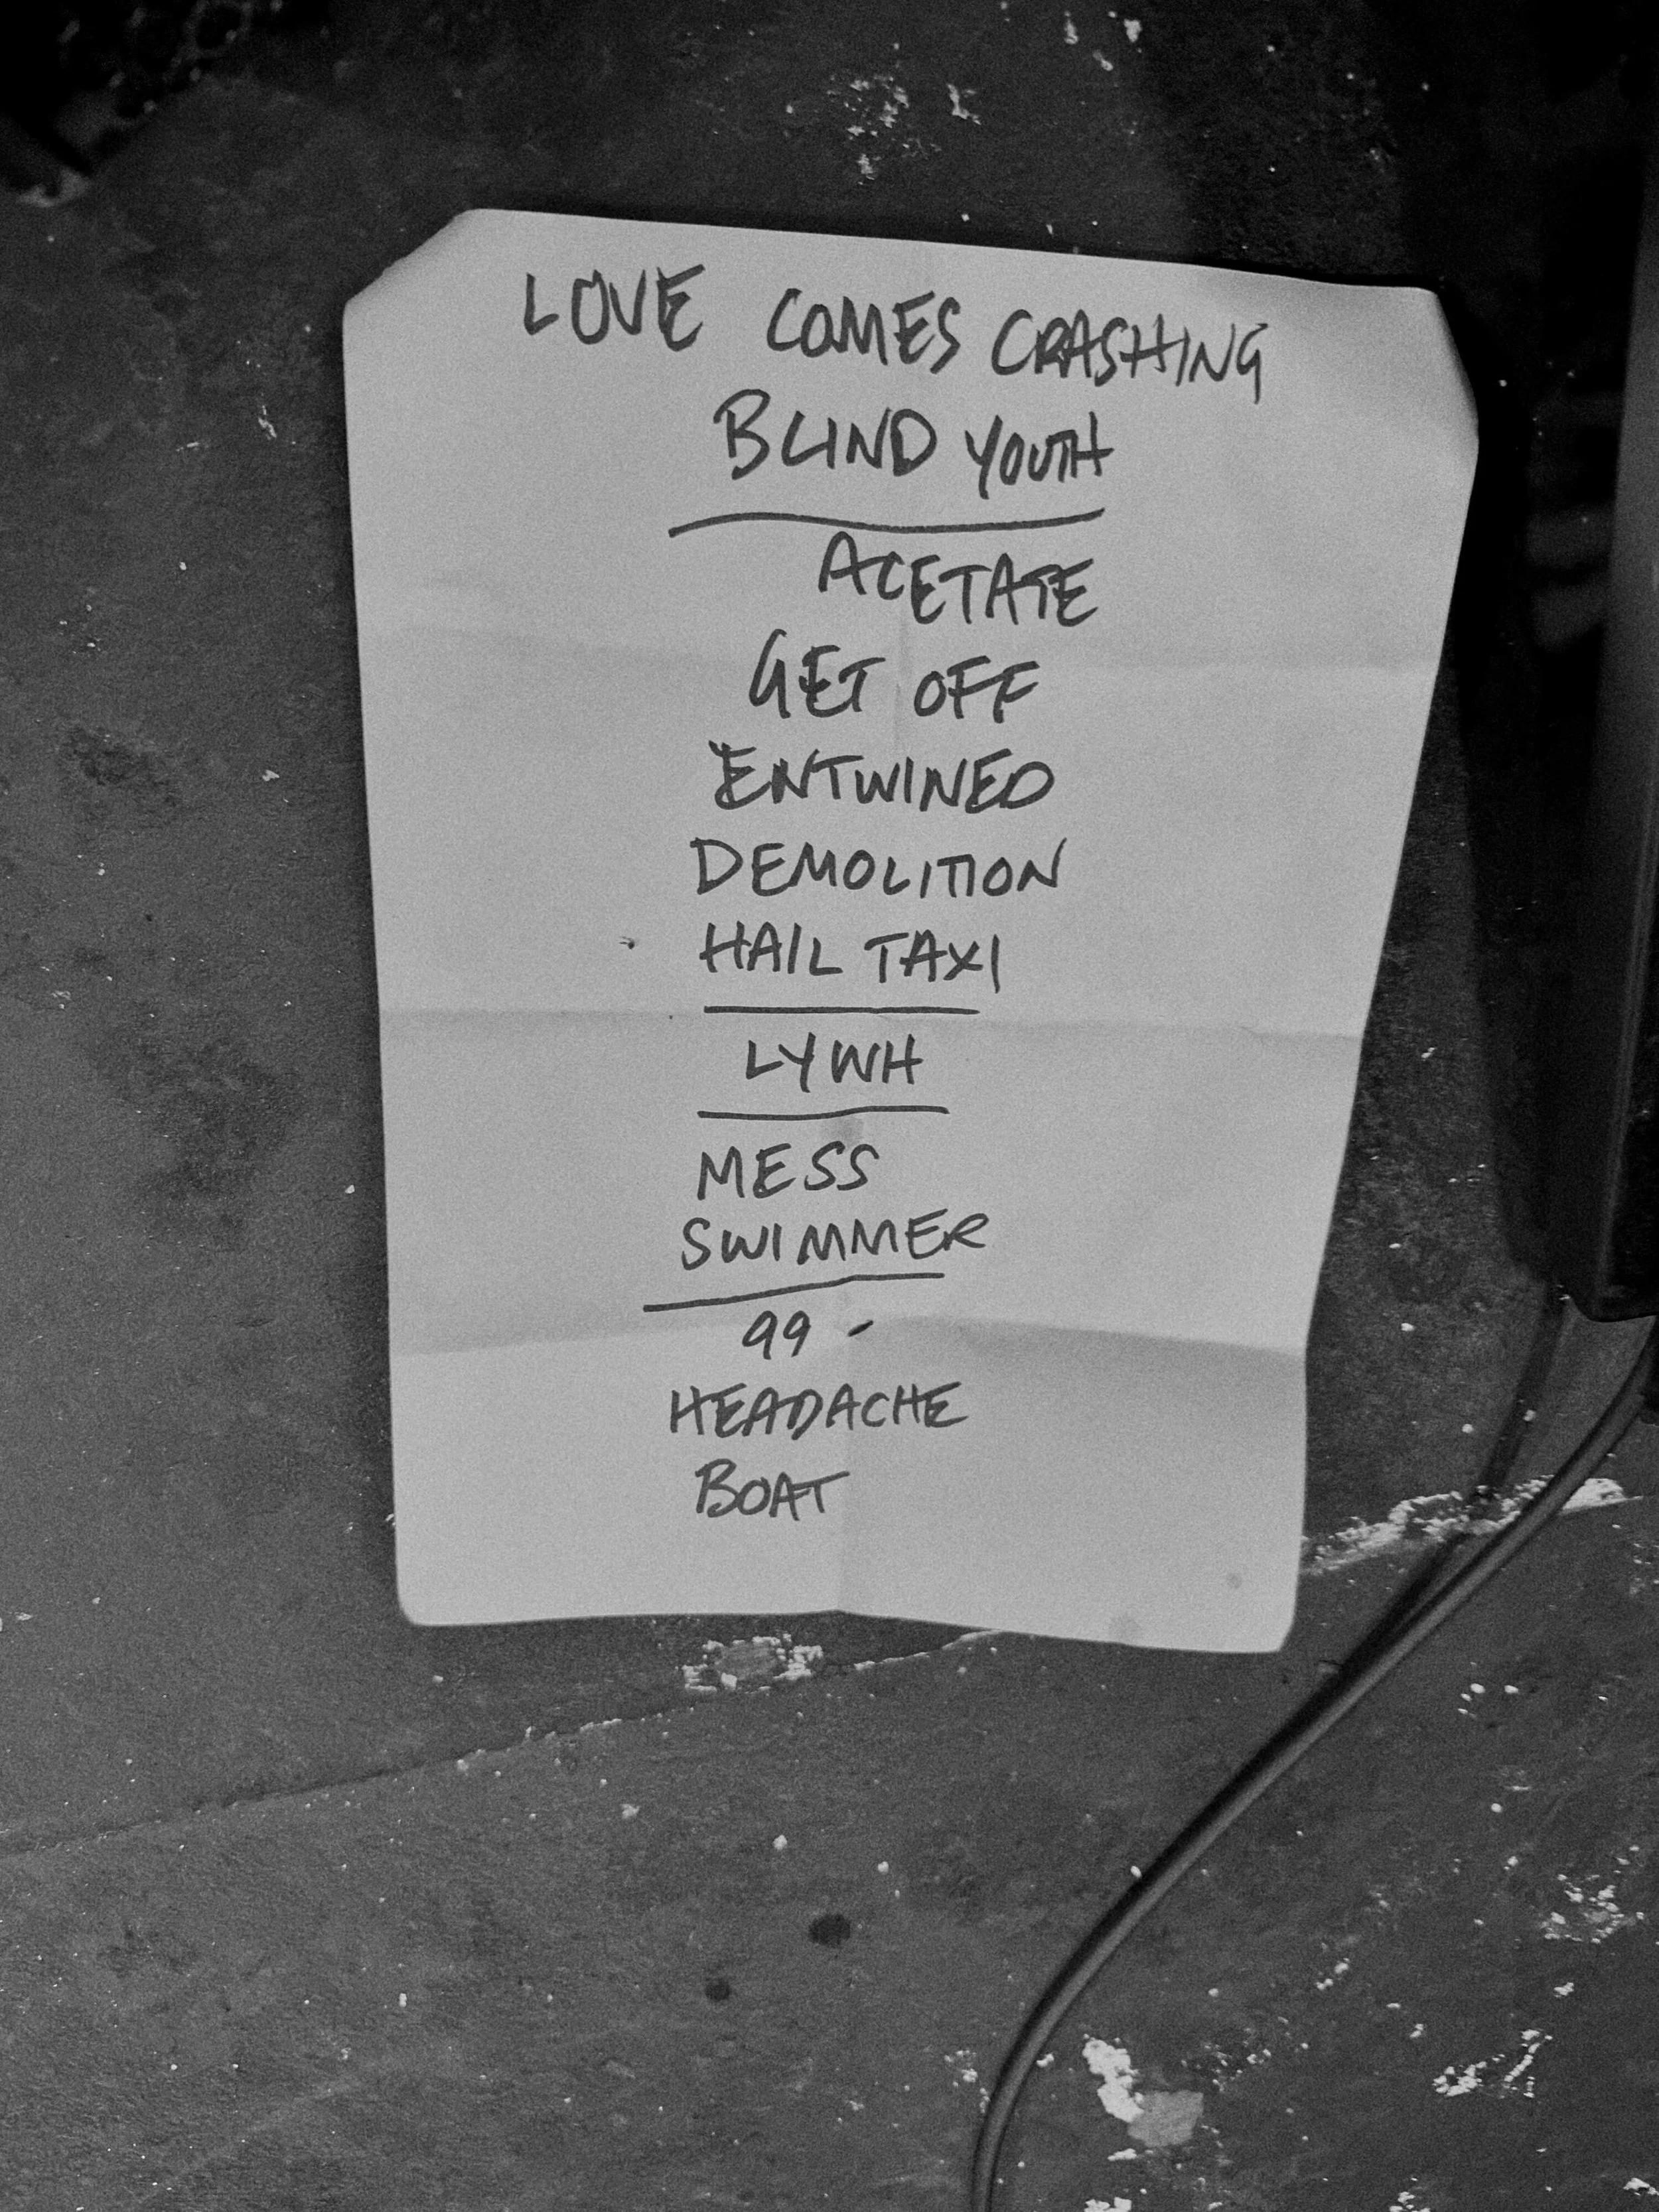 LOVE COMES CRASHING
BLIND YOUTH
ACETATE
GET OFF
ENTWINED
DEMOLITION
HAIL TAXI
LYWH
MESS
SWIMMER
99 -
HEADACHE
BOAT